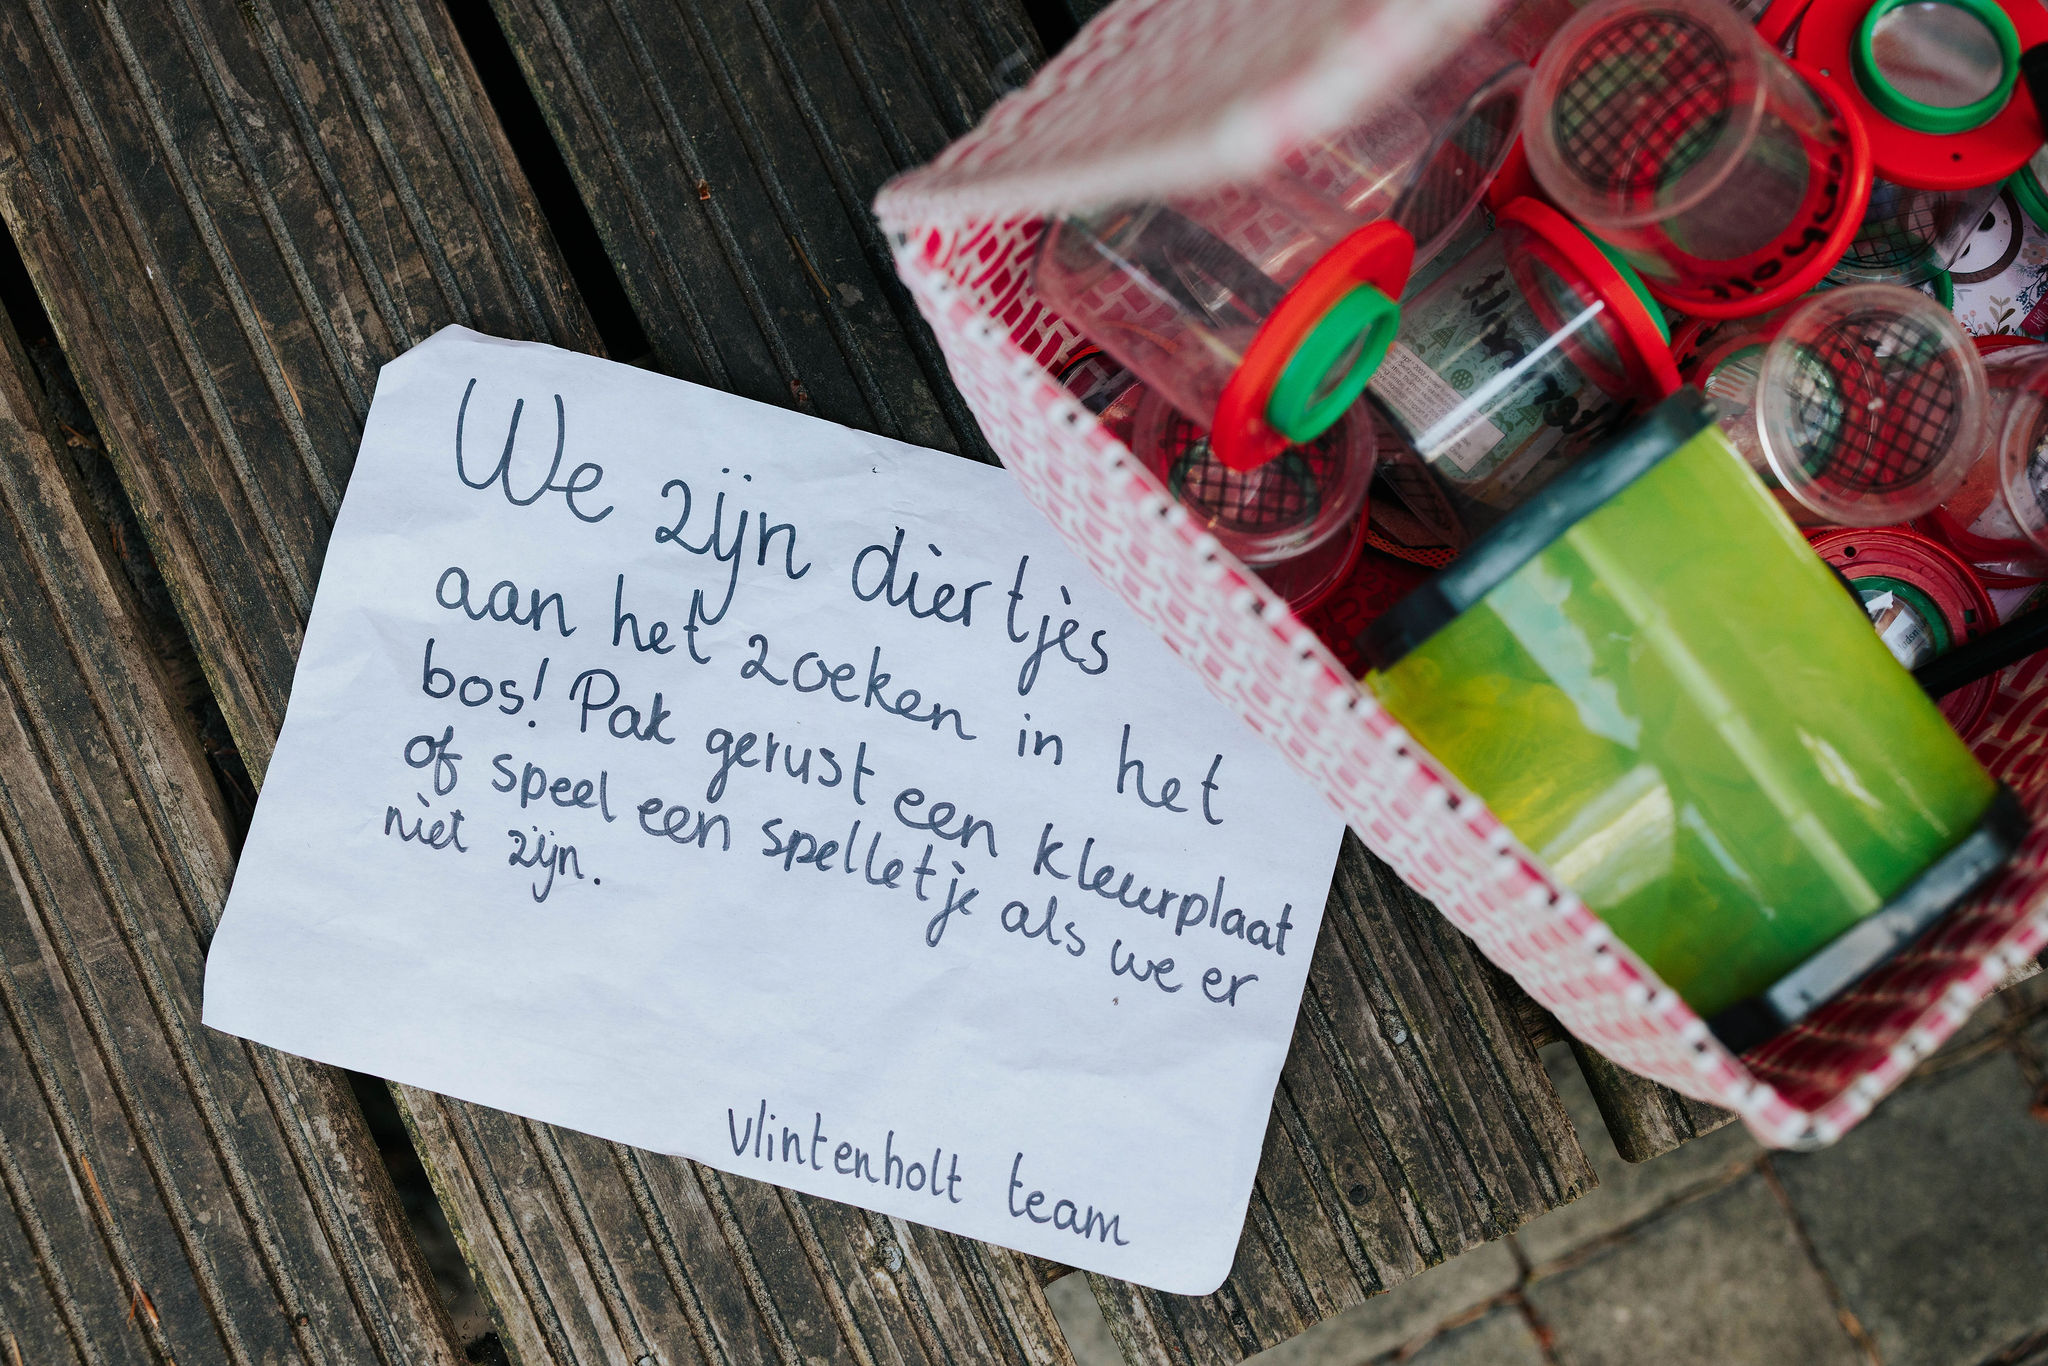 We zijn diertjes
aan het zoeken in het
bos! Pak gerust een kleurplaat
of speel een spelletje als we er
niet zijn.
vlintenholt team